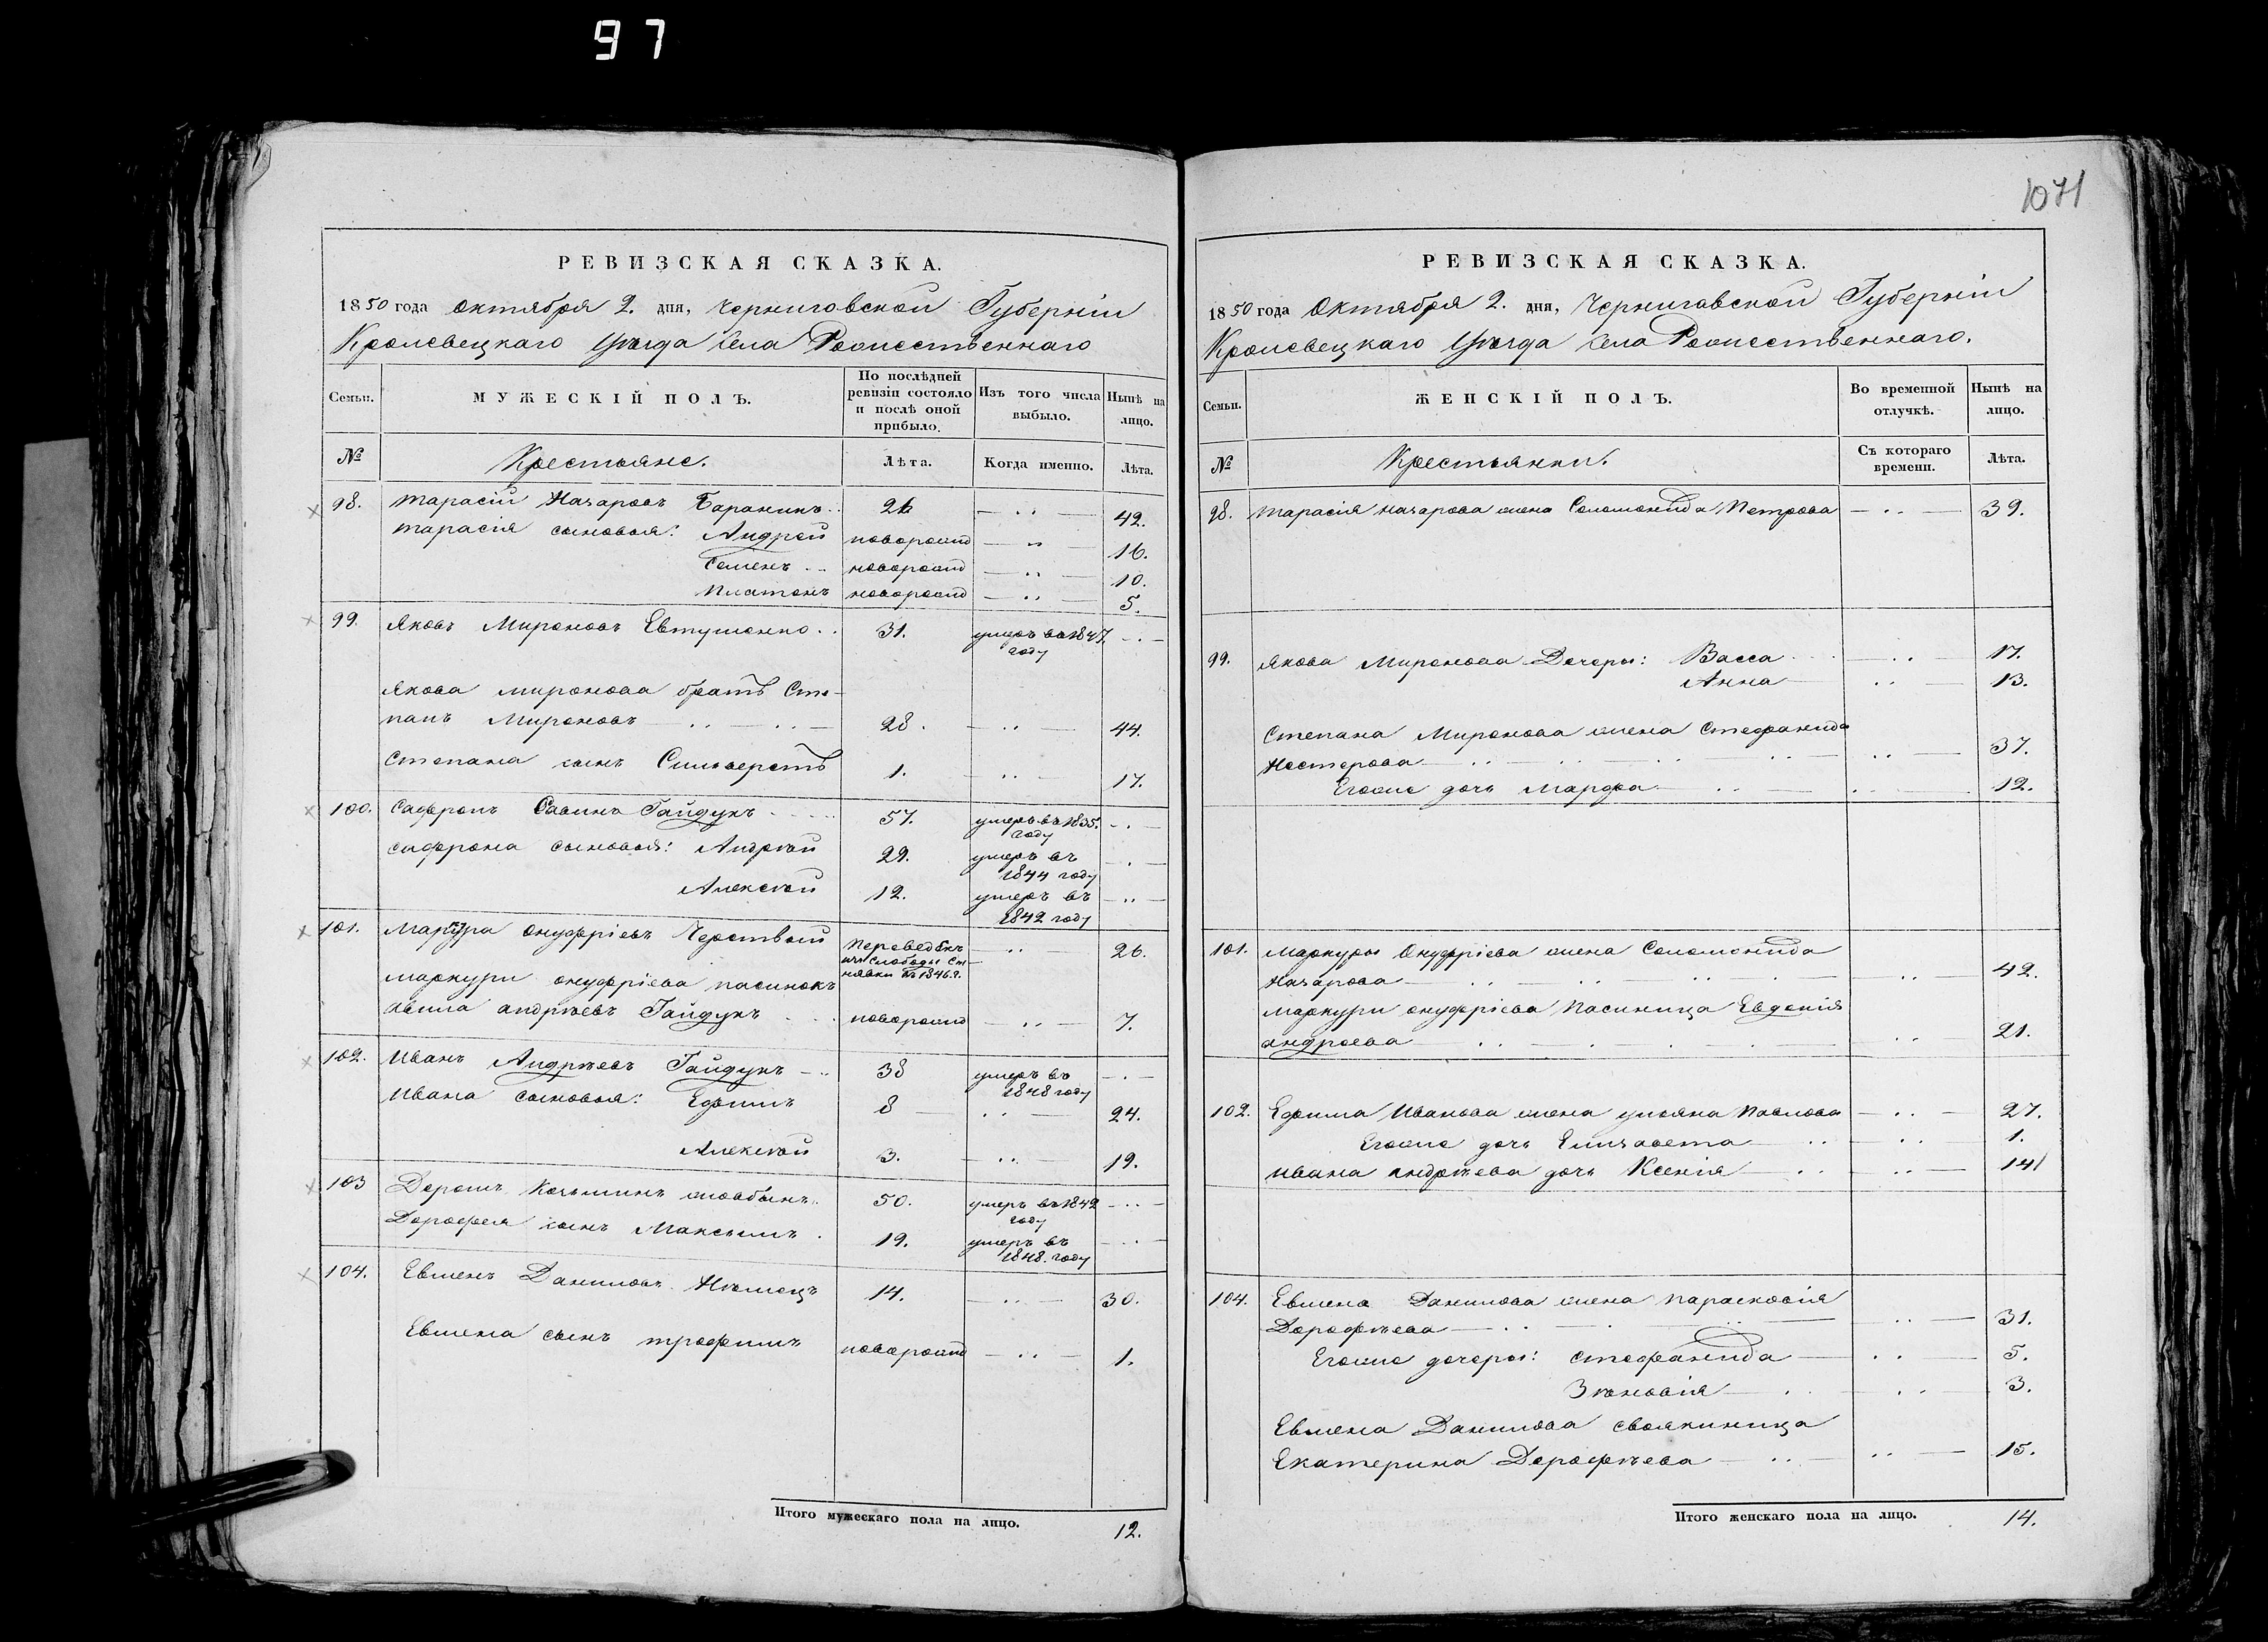 97
1071
РЕВИЗСКАЯ СКАЗКА.
1850 года Октября 2. дня, Черниговской Губерніи
Кролевецкаго Уѣзда Села Рожественнаго
Семьи. МУЖЕСКІЙ ПОЛЪ. По послѣдней ревизіи состояло и послѣ оной прибыло. Изъ того числа выбыло. Нынѣ на лицо.
№ Крестьяне. Лѣта. Когда именно. Лѣта.
98. Тарасій Назаровъ Баранникъ 26 42.
Тарасія сыновья: Андрей новорожд 16.
Семенъ новорожд 10.
Платонъ новорожд 5.
99. Яковъ Мироновъ Евтушенко 31. умеръ въ 1847. году
Якова Миронова братъ Сте-
панъ Мироновъ 28. 44.
Степана сынъ Сильверстъ 1. 17.
100. Сафронъ Савинъ Гайдукъ 57. умеръ въ 1835. году
Сафрона сыновья: Андрѣй 29. умеръ въ 1844 году
Алексѣй 12. умеръ въ 1842 году
101. Маркура Онуфріевъ Черствый переведѣнъ изъ слободы 1846. 26.
Маркури Онуфріева пасинокъ
Авила Андрѣевъ Гайдукъ новорожд 7.
102. Иванъ Андрѣевъ Гайдукъ 38 умеръ въ 1848 году
Ивана сыновья: Ефимъ 8 24.
Алексѣй 3. 19.
103 Дорошъ Козьминъ 50. умеръ въ 1849 году
Дорофея сынъ Максымъ 19. умеръ въ 1848. году
104. Евменъ Даниловъ Нѣмецъ 14. 30.
Евмена сынъ Трофимъ новорожд 1.
Итого мужескаго пола на лицо. 12.
РЕВИЗСКАЯ СКАЗКА.
1850 года Октября 2. дня, Черниговской Губерніи
Кролевецкаго Уѣзда Села Рожественнаго.
Семьи. ЖЕНСКІЙ ПОЛЪ. Во временной отлучкѣ. Нынѣ на лицо.
№ Крестьянки. Съ котораго времени. Лѣта.
98. Тарасія Назарова жена Соломонида Петрова 39.
99. Якова Миронова Дочеры: Васса 17.
Анна 13.
Степана Миронова жена Стефанида
Нестерова 37.
Егоже дочь Марфа 12.
101. Маркуры Онуфріева жена Соломонида
Назарова 42.
Маркури Онуфріева Пасиница Евдокія
Андреева 21.
102. Ефима Иванова жена Ульяна Павлова 27.
Егоже дочь Елизавета 1.
Ивана Андрѣева дочь Ксенія 14
104. Евмена Данилова жена Парасковія
Дорофѣева 31.
Егоже дочеры: Стефанида 5.
Зѣновія 3.
Евмена Данилова своякиница
Екатерина Дорофѣева 15.
Итого женскаго пола на лицо. 14.